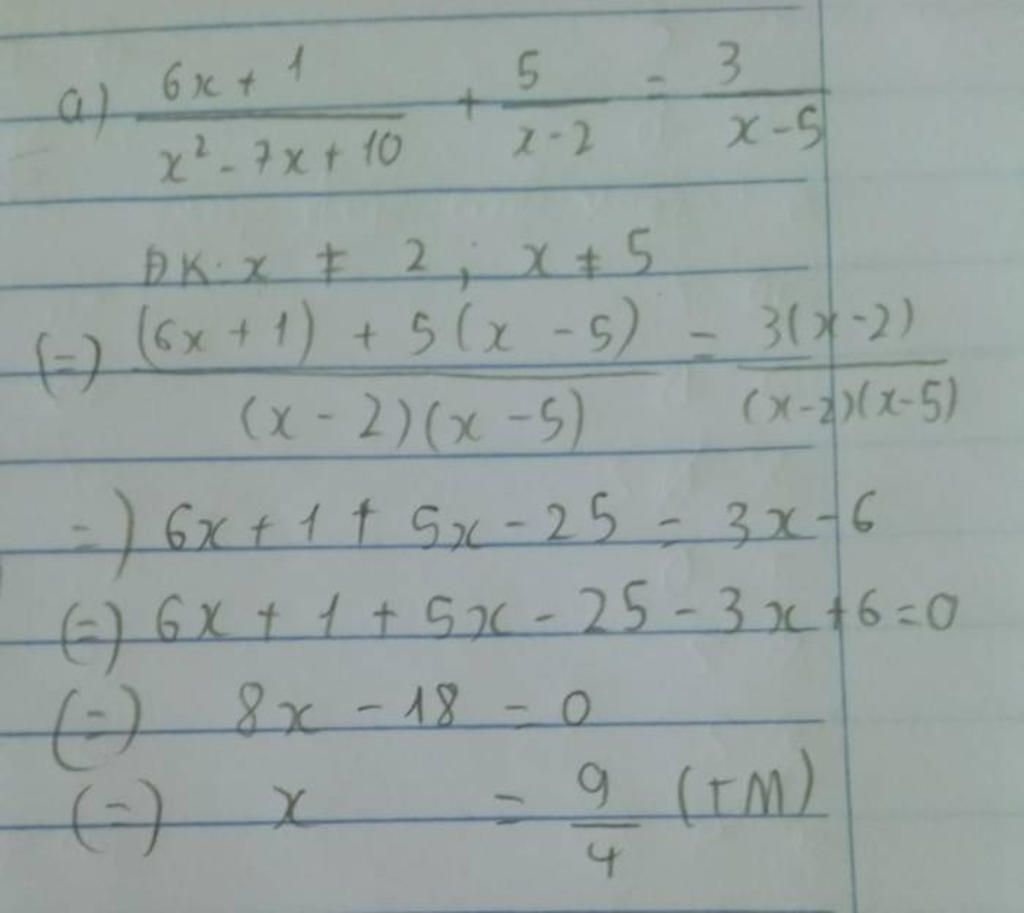 a) (6x + 1)/(x² - 7x + 10) + 5/(x - 2) = 3/(x - 5)
ĐK: x ≠ 2 ; x ≠ 5
(=) ((6x + 1) + 5(x - 5))/((x - 2)(x - 5)) = 3(x - 2)/((x - 2)(x - 5))
=) 6x + 1 + 5x - 25 = 3x - 6
(=) 6x + 1 + 5x - 25 - 3x + 6 = 0
(=) 8x - 18 = 0
(=) x = 9/4 (TM)